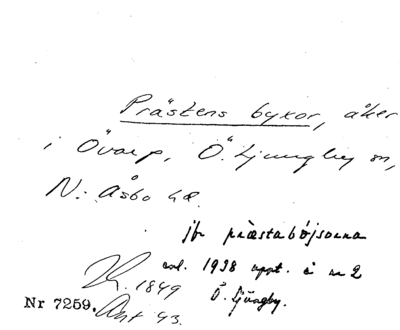 Prästens byxor, åker
i Övarp, Ö. Ljungby sn,
N. Åsbo hd.
jfr præstabójsorna
enl. 1938 uppt. å nr 2
K. 1849 Ö. Ljungby.
Nr 7259. Ant 43.